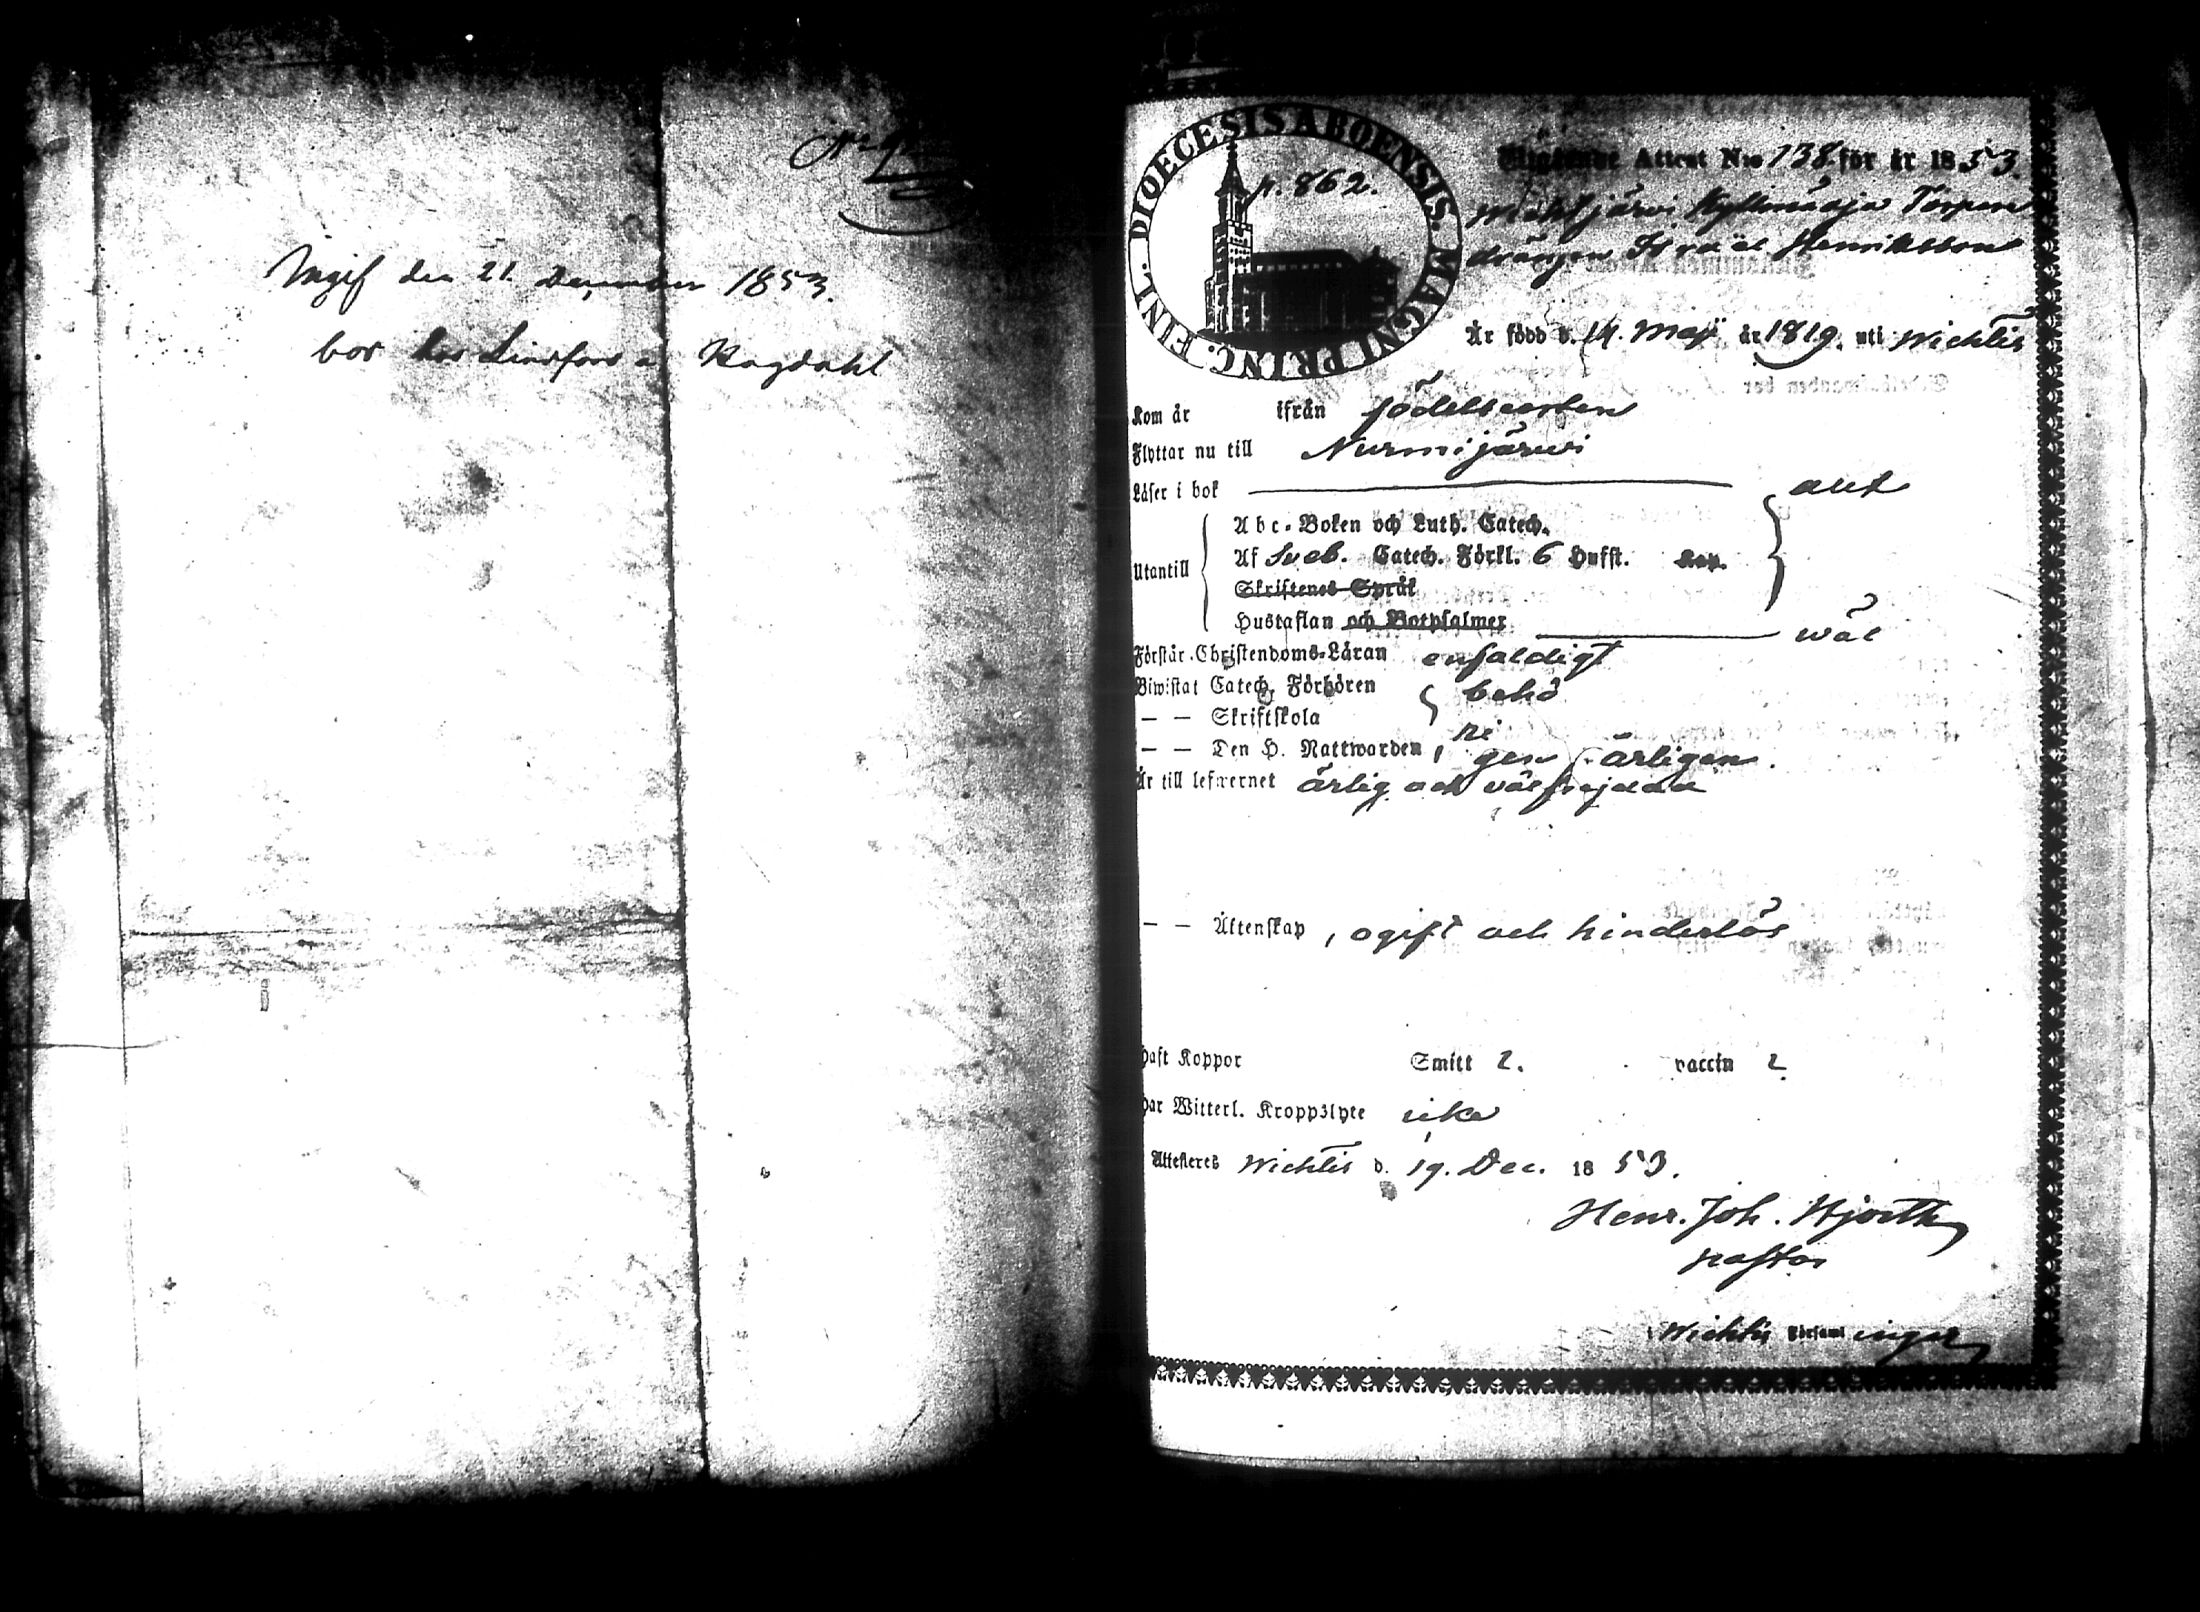 Ingif den 21 December 1853.
bor hos Lindfors a Ragdahl
DIOECESIS ABOENSIS. MAGNI PRINC. FINL.
p. 862.
Utgående Attest N:o 138. för år 1853.
Törpen
drängen Israël Henriksson
Är född d. 14. Maji år 1819. uti Wichtis
Kom år ifrån födelseorten
Flyttar nu till Nurmijärwi
Läser i bok
Utantill
Abc-Boken och Luth. Catech.
Af Sveb. Catech. Förkl. 6 Hufst. Kap.
Skriftenes Språk
Hustaflan och Botpsalmer wäl
Förstår Christendoms-Läran enfaldigt
Biwistat Catech. Förhören behö
— — Skriftskola ri
— — Den H. Nattwarden, gen årligen.
Är till lefwernet ärlig och välfrejdad
— — Äktenskap, ogift och hinderlös
Haft Koppor Smitt 2. vaccin 2
Har Witterl. Kroppslyte icke
Attesteras Wichtis d. 19. Dec. 1853.
Henr. Joh. Hjorth
pastor
i Wichtis Församl ingar